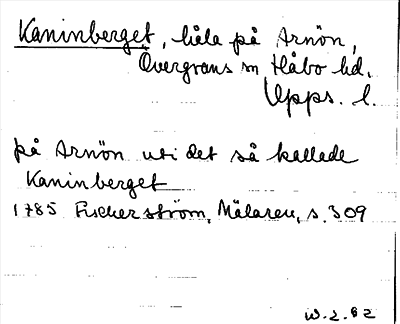 Kaninberget, håla på Arnön,
Övergrans sn Håbo hd.
Upps. l.
på Arnön uti det så kallade
Kaninberget
1785 Fischerström, Mälaren, s. 309
W.Z. 62